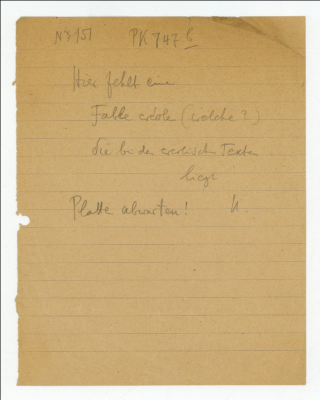 N3151 PK 747 b
Hier fehlt eine
Fable créole (welche?)
die bei den creolischen Texten
liegt
Platte abwarten! H.